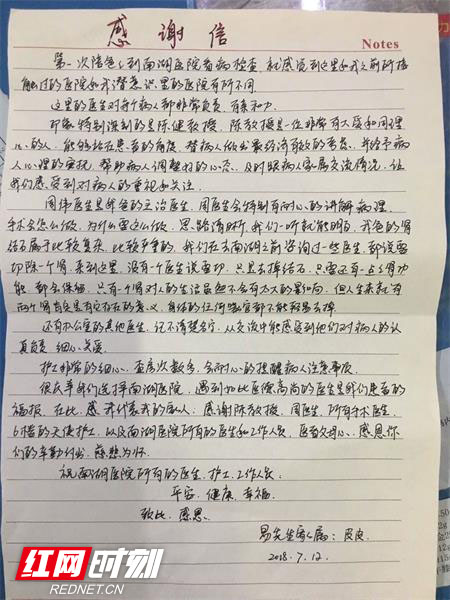 感谢信
Notes
第一次陪爸爸到南湖医院看病检查，就感觉到这里和我之前所接
触过的医院和我潜意识里的医院有所不同。
这里的医生对每个病人都非常负责，有亲和力。
印象特别深刻的是陈健教授，陈教授是一位非常有大爱和同理
心的人，能够站在患者的角度，替病人做出最经济有效的方案，并给予病
人心理的安抚，帮助病人调整好的心态，及时跟病人家属交流情况，让
我们感受到对病人的重视和关注。
周伟医生是我爸的主治医生，周医生会特别有耐心的讲解病理，
手术会怎么做，为什么要这么做，思路清晰，我们一听就能明白，我爸的肾
结石属于比较复杂，比较严重的，我们在来南湖之前咨询过一些医生，都说要
切除一个肾，来到这里，没有一个医生说要切，只是去掉结石，只要还有一点点肾功
能，都会保留，只有一个肾对人的生活虽然不会有太大的影响，但人生来就有
两个肾肯定是有它存在的意义，身体的任何器官都不能轻易去掉
还有办公室的其他医生，记不清楚名字，从交流中能感受到他们对病人的认
真负责，细心关爱。
护士非常的细心，查房次数多，会耐心的提醒病人注意事项。
很庆幸我们选择南湖医院，遇到如此医德高尚的医生是我们患者的
福报，在此，感我代表我的家人，感谢陈教授，周医生，所有手术医生，
6楼的天使护士，以及南湖医院所有的医生和工作人员，医者父母心，感恩你
们的辛勤付出，慈悲为怀
祝南湖医院所有的医生，护士，工作人员：
平安，健康，幸福
致此，感恩
易先生家属：皮皮
2018.7.12
红网时刻
REDNET.CN